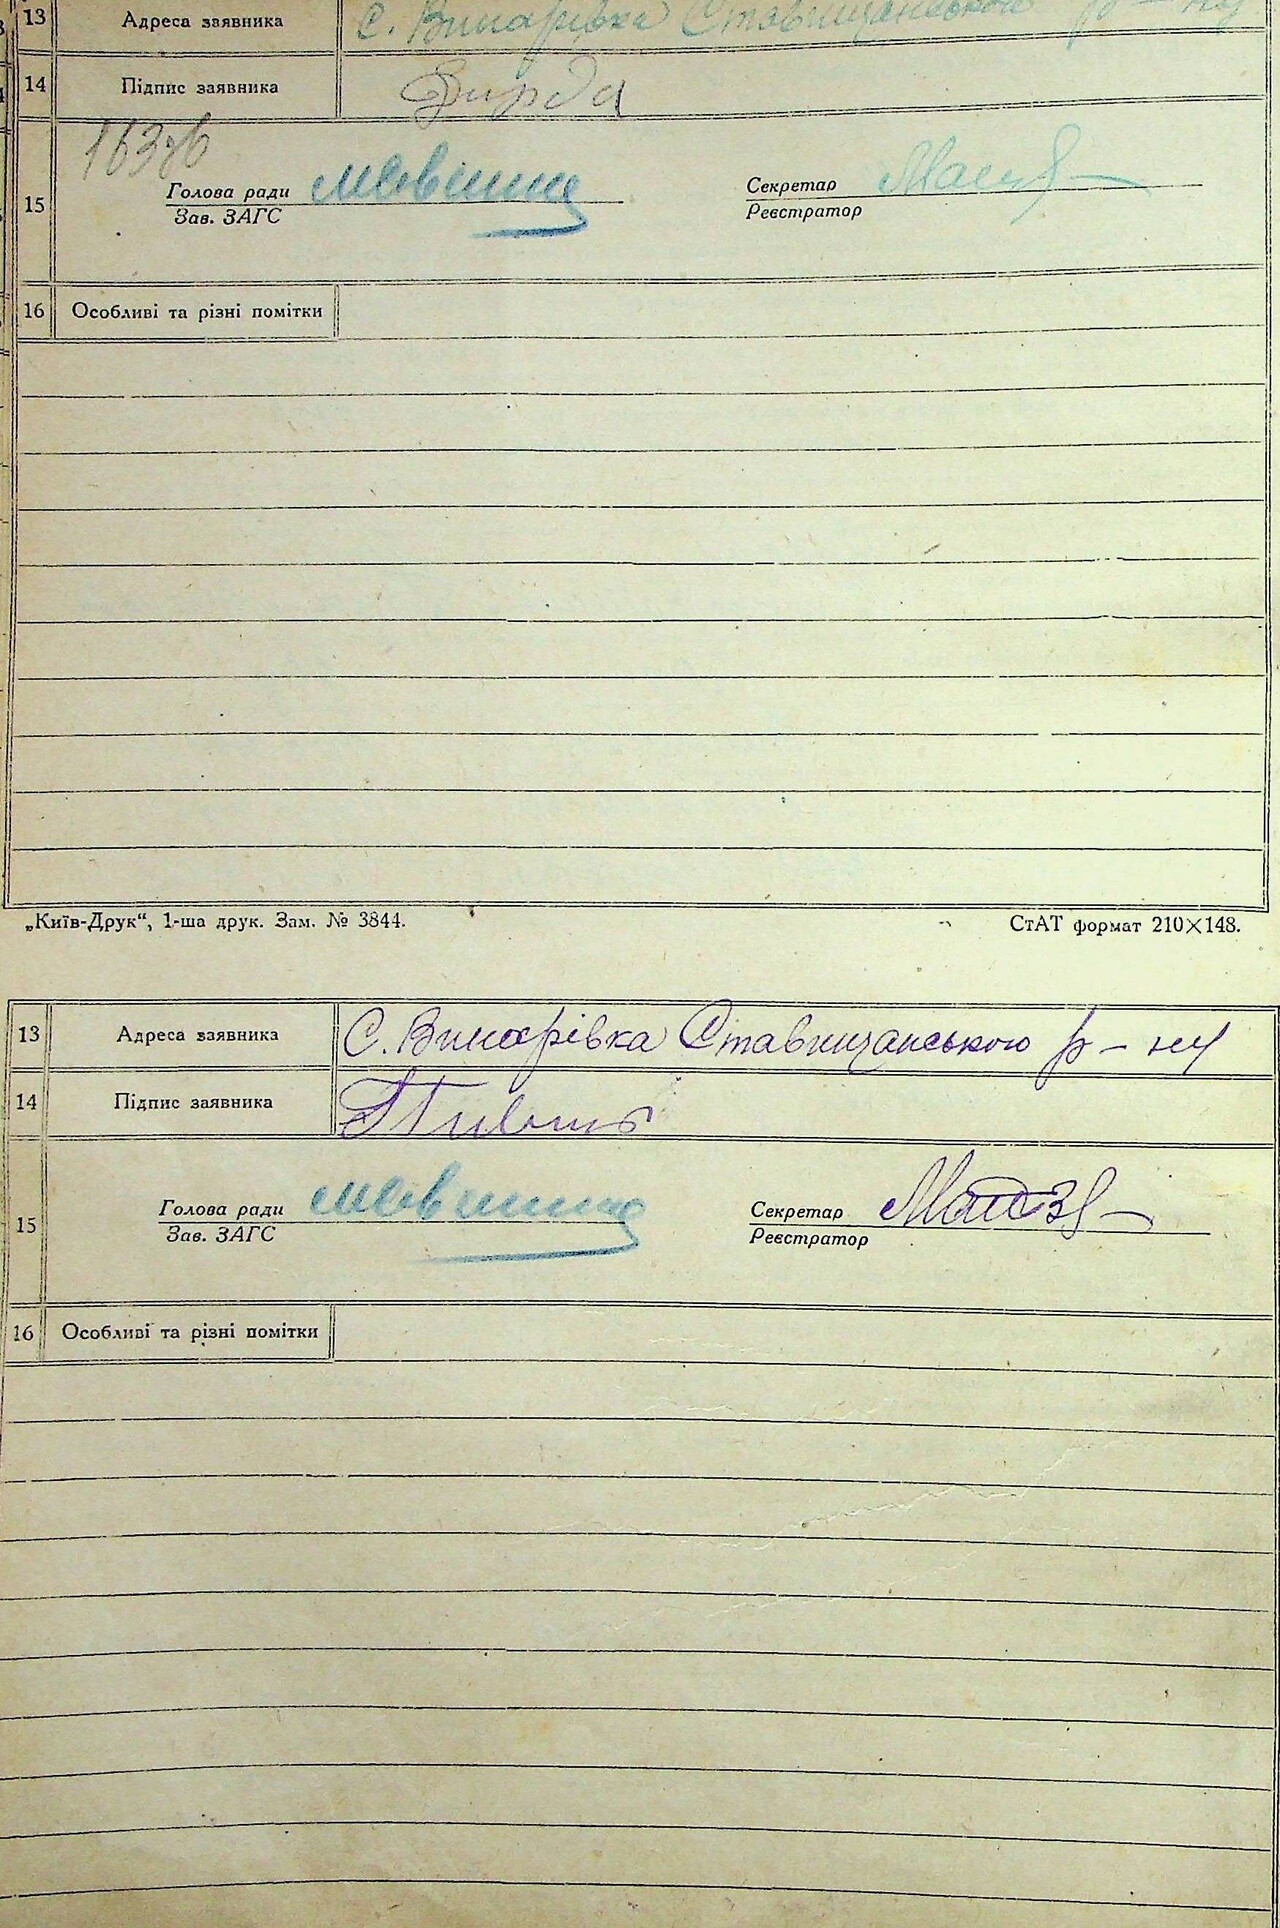 13 Адреса заявника С. Винарівка Ставищанською р-ну
14 Підпис заявника Вирда
15 Голова ради Секретар
Зав. ЗАГС Реєстратор
16 Особливі та різні помітки
„Київ-Друк“, 1-ша друк. Зам. № 3844. СтАТ формат 210×148.
13 Адреса заявника С. Винарівка Ставищанською р-ну
14 Підпис заявника
15 Голова ради Секретар
Зав. ЗАГС Реєстратор
16 Особливі та різні помітки